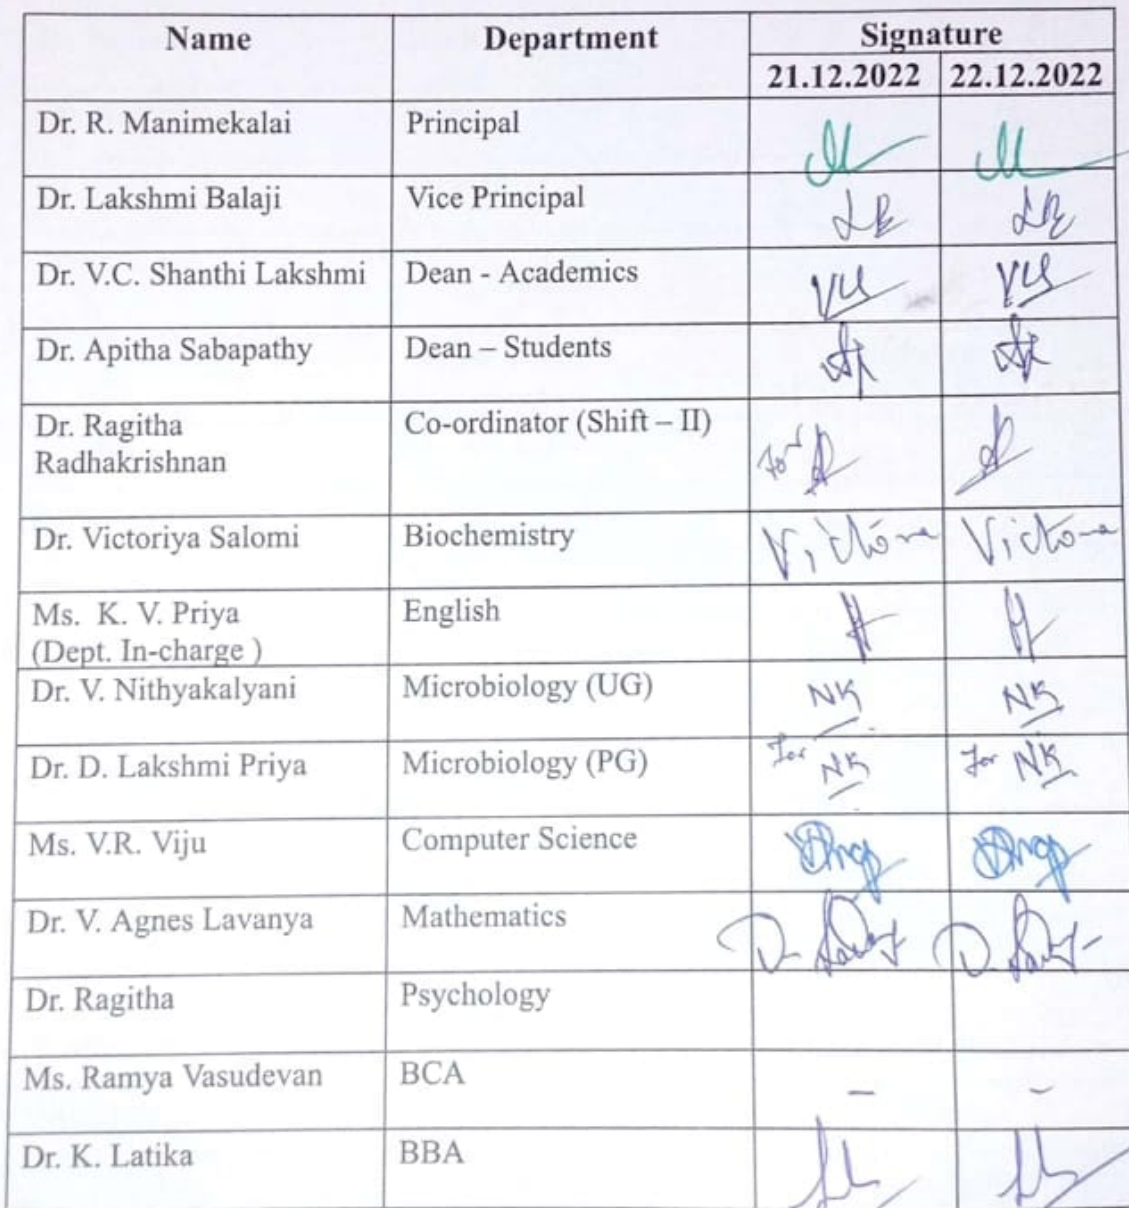 Name Department Signature
21.12.2022 22.12.2022
Dr. R. Manimekalai Principal
Dr. Lakshmi Balaji Vice Principal LB LB
Dr. V.C. Shanthi Lakshmi Dean - Academics
Dr. Apitha Sabapathy Dean – Students
Dr. Ragitha Co-ordinator (Shift – II)
Radhakrishnan for
Dr. Victoriya Salomi Biochemistry
Ms. K. V. Priya English
(Dept. In-charge )
Dr. V. Nithyakalyani Microbiology (UG) NK NK
Dr. D. Lakshmi Priya Microbiology (PG) For NK For NK
Ms. V.R. Viju Computer Science
Dr. V. Agnes Lavanya Mathematics
Dr. Ragitha Psychology
Ms. Ramya Vasudevan BCA - -
Dr. K. Latika BBA